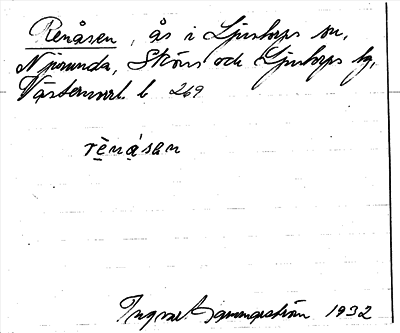 Renåsen, ås i Ljustorps sn,
Njurunda, Sköns och Ljustorps tg,
Västernorrl. l 269
rènåsen
Ingmar 1932